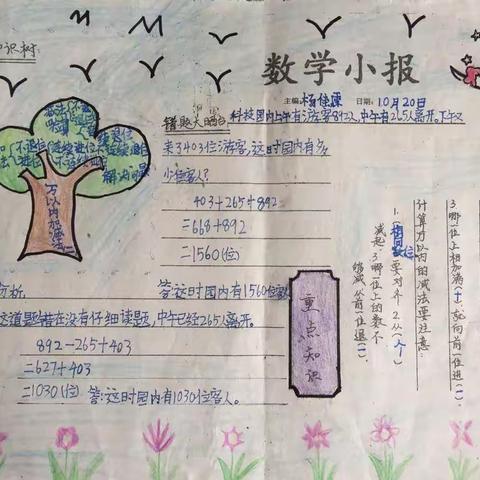 识树
数学小报
主编: 杨佳 日期: 10月20日
错题大晒台
科技园内上午有游客892人,中午有265人离开。下午又
来了403位游客,这时园内有多
少位客人?
403+265+892
=668+892
=1560(位)
答:这时园内有1560位客人
分析
这道题错在没有仔细读题,中午已经265人离开。
892-265+403
=627+403
=1030(位) 答:这时园内有1030位客人。
万以内加减法
重点知识
3.哪一位上相加满(十),就向前一位进(一)。
计算万以内的减法要注意:
1.(相同数位)要对齐 2.从(个)
减起 3.哪一位上的数不
够减,从前一位退(一)